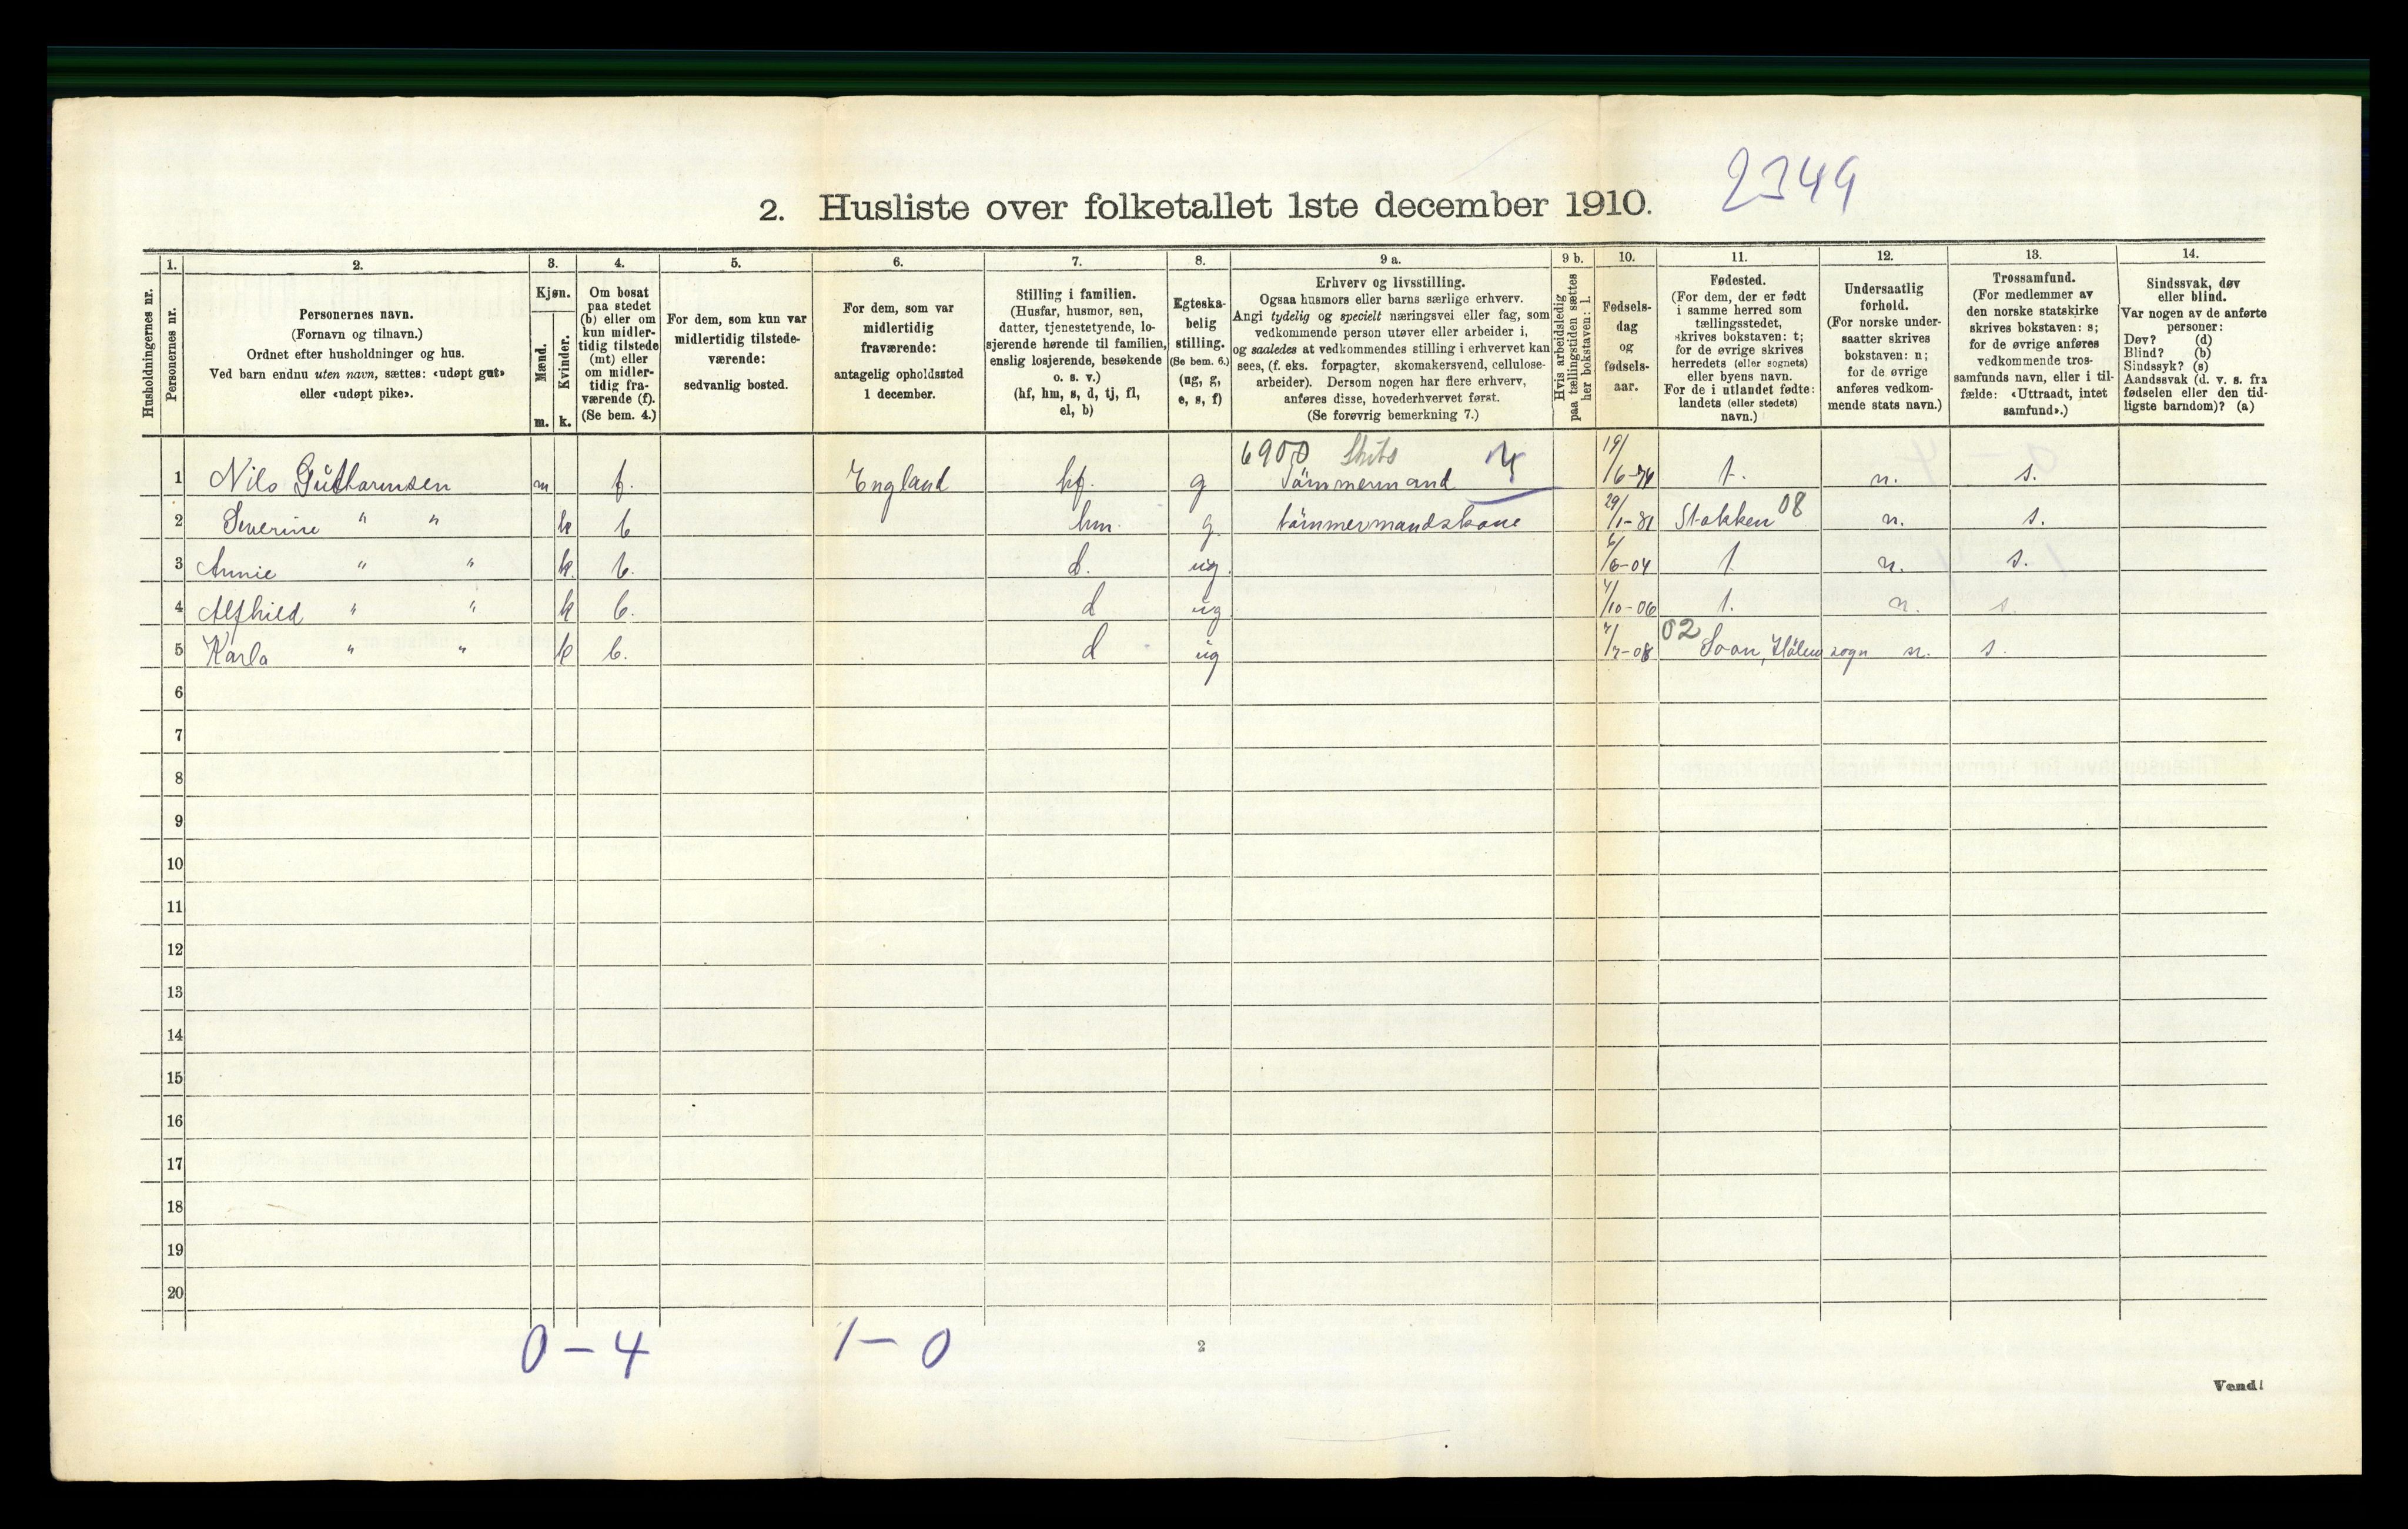 2349
2. Husliste over folketallet 1ste december 1910.
Husholdningernes nr.
1.
Personernes nr.
2.
Personernes navn.
(Fornavn og tilnavn.)
Ordnet efter husholdninger og hus.
Ved barn endnu uten navn, sættes: «udøpt gut»
eller «udøpt pike».
3.
Kjøn.
Mænd.
Kvinder.
m. k.
4.
Om bosat
paa stedet
(b) eller om
kun midler-
tidig tilstede
(mt) eller
om midler-
tidig fra-
værende (f).
(Se bem. 4.)
5.
For dem, som kun var
midlertidig tilstede-
værende:
sedvanlig bosted.
6.
For dem, som var
midlertidig
fraværende:
antagelig opholdssted
1 december.
7.
Stilling i familien.
(Husfar, husmor, søn,
datter, tjenestetyende, lo-
sjerende hørende til familien,
enslig losjerende, besøkende
o. s. v.)
(hf, hm, s, d, tj, fl,
el, b)
8.
Egteska-
belig
stilling.
(Se bem. 6.)
(ug, g,
e, s, f)
9 a.
Erhverv og livsstilling.
Ogsaa husmors eller barns særlige erhverv.
Angi tydelig og specielt næringsvei eller fag, som
vedkommende person utøver eller arbeider i,
og saaledes at vedkommendes stilling i erhvervet kan
sees, (f. eks. forpagter, skomakersvend, cellulose-
arbeider). Dersom nogen har flere erhverv,
anføres disse, hovederhvervet først.
(Se forøvrig bemerkning 7.)
9 b.
Hvis arbeidsledig
paa tællingstiden sættes
her bokstaven: l.
10.
Fødsels-
dag
og
fødsels-
aar.
11.
Fødested.
(For dem, der er født
i samme herred som
tællingsstedet,
skrives bokstaven: t;
for de øvrige skrives
herredets (eller sognets)
eller byens navn.
For de i utlandet fødte:
landets (eller stedets)
navn.)
12.
Undersaatlig
forhold.
(For norske under-
saatter skrives
bokstaven: n;
for de øvrige
anføres vedkom-
mende stats navn.)
13.
Trossamfund.
(For medlemmer av
den norske statskirke
skrives bokstaven: s;
for de øvrige anføres
vedkommende tros-
samfunds navn, eller i til-
fælde: «Uttraadt, intet
samfund».)
14.
Sindssvak, døv
eller blind.
Var nogen av de anførte
personer:
Døv? (d)
Blind? (b)
Sindssyk? (s)
Aandssvak (d. v. s. fra
fødselen eller den tid-
ligste barndom)? (a)
6900 Skibs
1 Nils Guttormsen m f. England hf. g Tömmermand 19/6-74 t. n. s.
2 Severine " " k b hm g. tömmermandskone 29/1-81 Stokken 08 n. s.
3 Annie " " k. b. d. ug. 6/6-04 t. n. s.
4 Alfhild " " k b. d ug 4/10-06 t. n. s.
5 Karla " " k b. d ug 02 Soon, Hölen sogn n. s.
6
7
8
9
10
11
12
13
14
15
16
17
18
19
20
0 - 4 1 - 0
2
Vend!